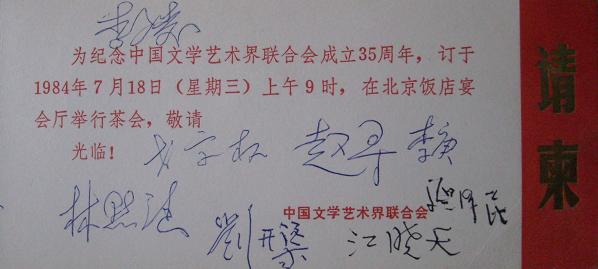 为纪念中国文学艺术界联合会成立35周年，订于
1984年7月18日（星期三）上午9时，在北京饭店宴
会厅举行茶会，敬请
光临！
赵寻 李庚
林默涵
中国文学艺术界联合会
江晓天
请柬